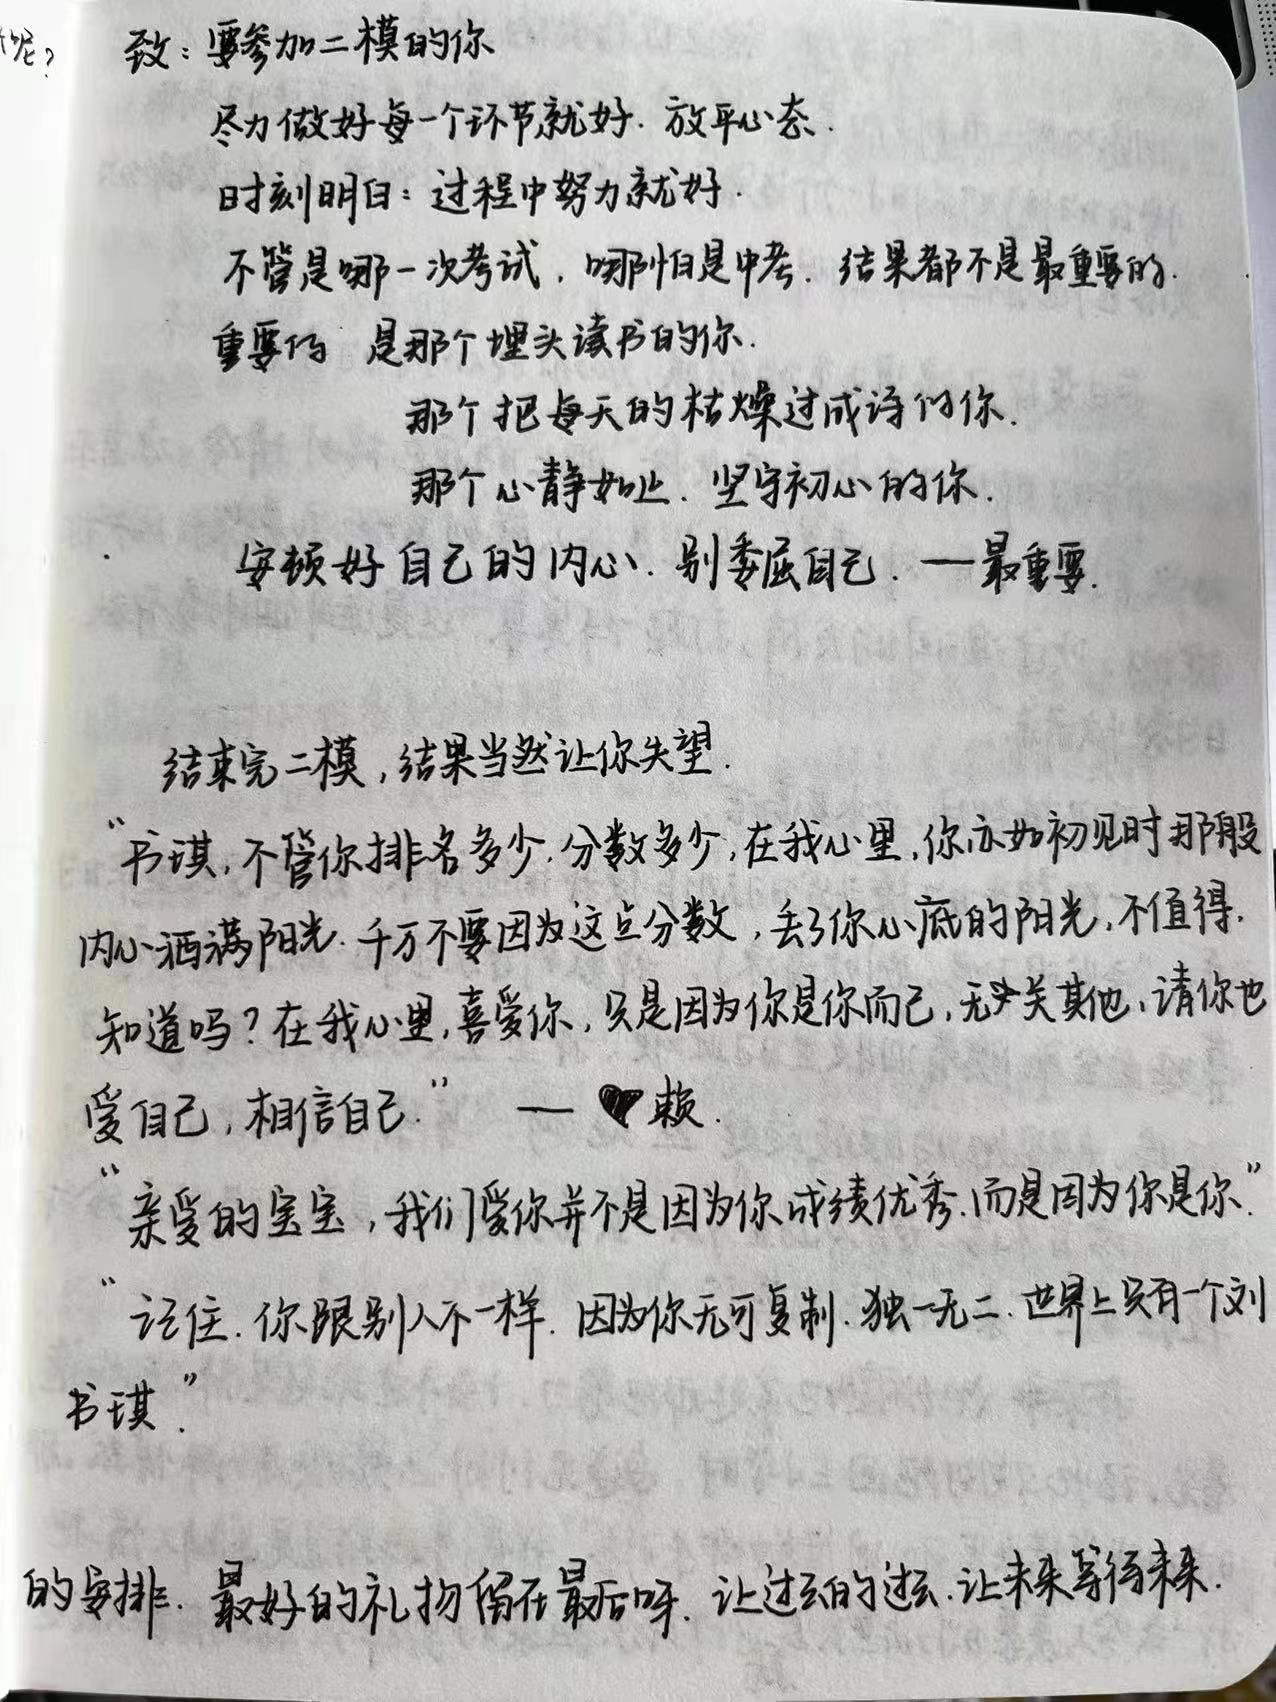 呢？
致：要参加二模的你
尽力做好每一个环节就好.放平心态.
时刻明白：过程中努力就好.
不管是哪一次考试，哪怕是中考.结果都不是最重要的.
重要的 是那个埋头读书的你.
那个把每天的枯燥过成诗的你.
那个心静如止.坚守初心的你.
安顿好自己的内心.别委屈自己.—最重要.
结束完二模，结果当然让你失望.
“书琪，不管你排名多少.分数多少，在我心里，你亦如初见时那般
内心洒满阳光.千万不要因为这点分数，丢了你心底的阳光，不值得.
知道吗？在我心里，喜爱你，只是因为你是你而已，无关其他，请你也
爱自己，相信自己.” — ♥赖.
“亲爱的宝宝，我们爱你并不是因为你成绩优秀.而是因为你是你.”
“记住.你跟别人不一样.因为你无可复制.独一无二.世界上只有一个刘
书琪.”
的安排.最好的礼物留在最后呀.让过去的过去.让未来等待未来.